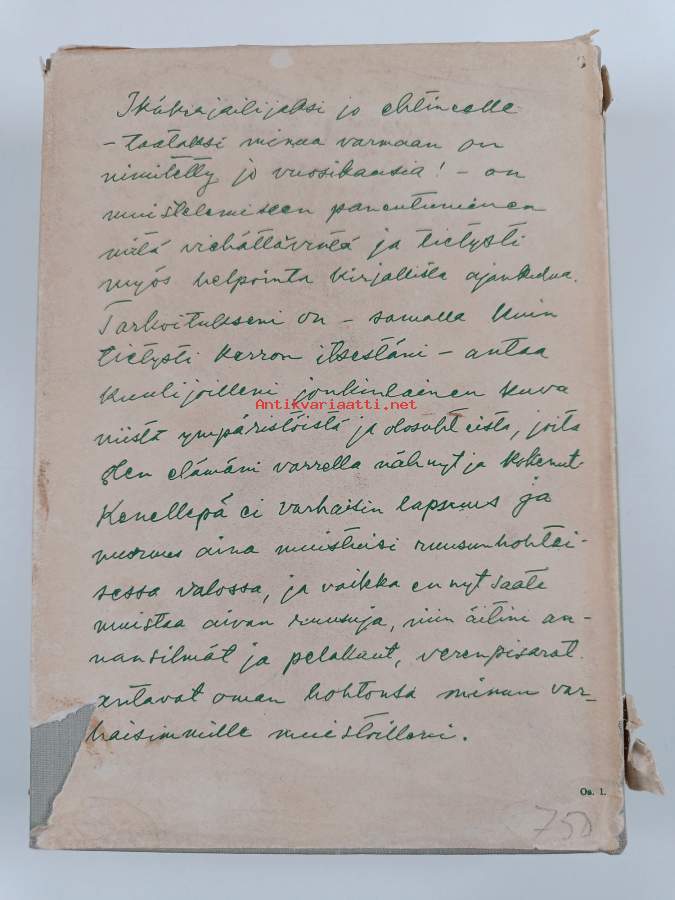 Ikäkirjailijaksi jo ehtineelle
– taataksi minua varmaan on
nimitetty jo vuosikausia! – on
muistelemiseen paneutuminen
mitä viehättävintä ja tietysti
myös helpointa kirjallista ajankulua.
Tarkoitukseni on – samalla kuin
tietysti kerron itsestäni – antaa
kuulijoilleni jonkinlainen kuva
Antikvariaatti.net
niistä ympäristöistä ja olosuhteista, joita
olen elämäni varrella nähnyt ja kokenut.
Kenellepä ei varhaisin lapsuus ja
nuoruus aina muistuisi ruusunhohtei-
sessa valossa, ja vaikka en nyt saata
muistaa aivan ruusuja, niin äitini an-
nansilmät ja pelakuut, verenpisarat
antavat oman hohtonsa minun var-
haisimmille muistoilleni.
Os. 1.
750